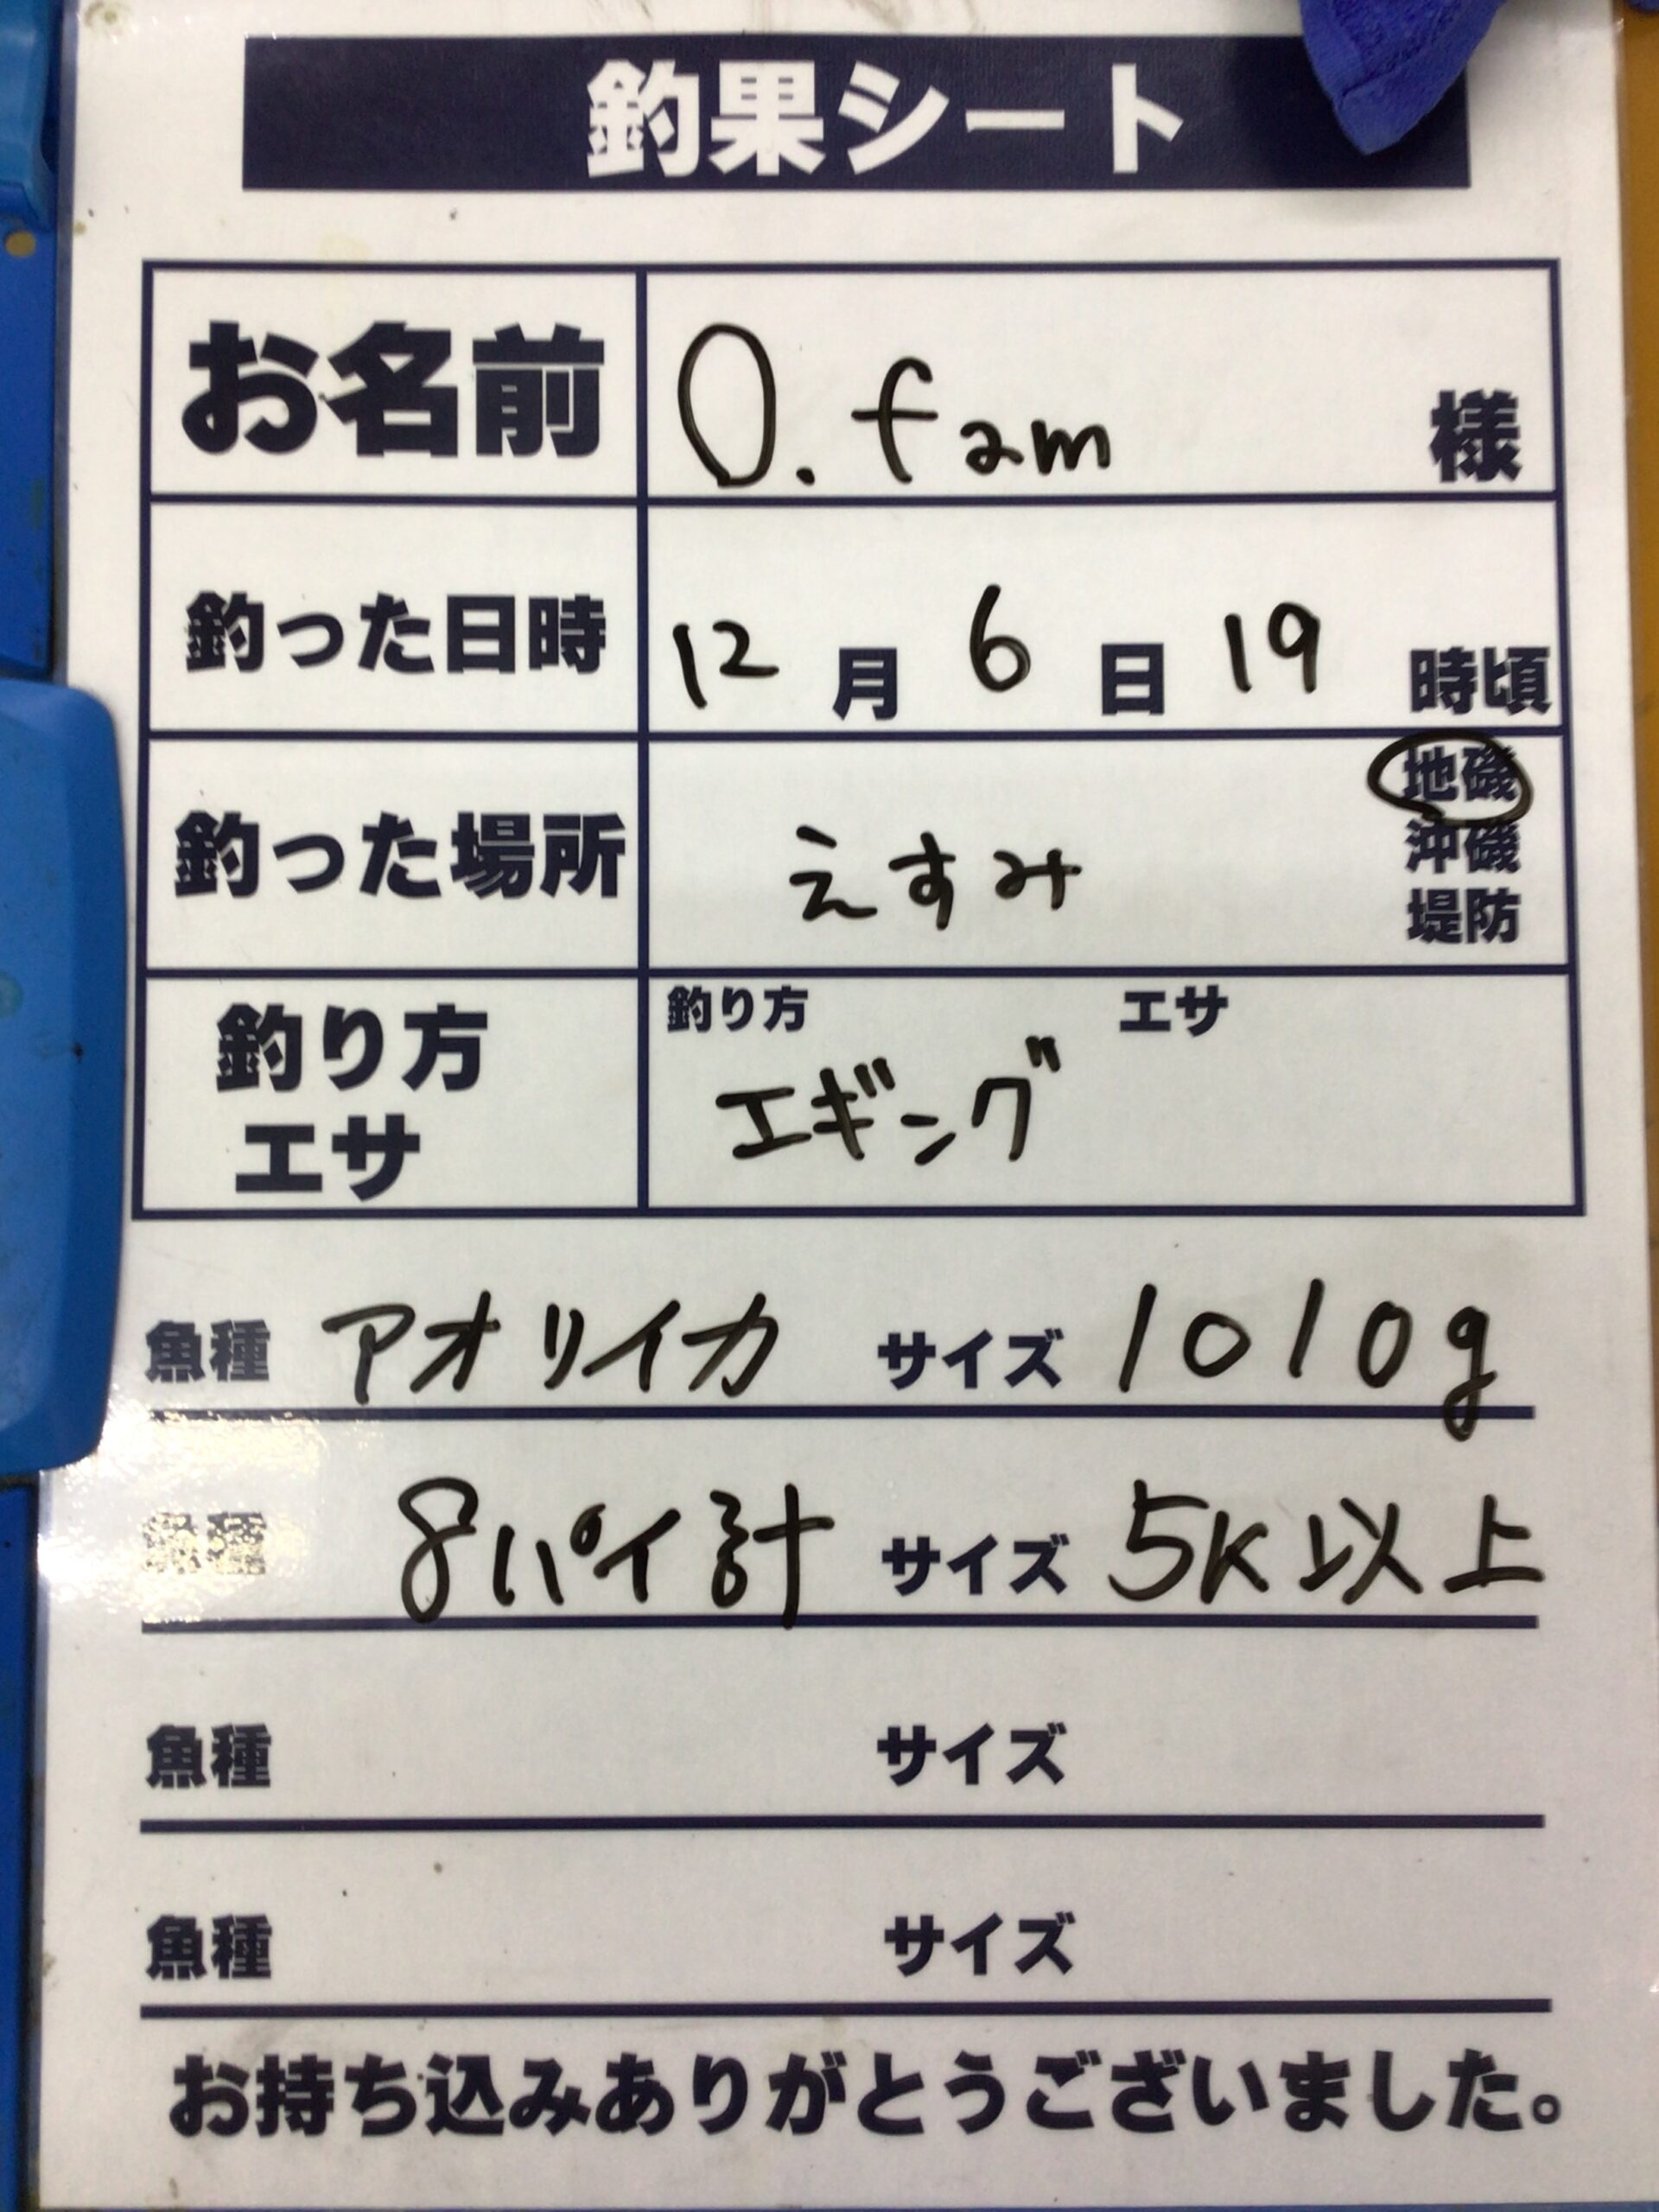 釣果シート
お名前 O.fam 様
釣った日時 12月6日19時頃
釣った場所 えすみ 地磯
沖磯
堤防
釣り方 エサ
釣り方 エサ
エギング
魚種 アオリイカ サイズ 1010g
魚種 8パイ計 サイズ 5K以上
魚種 サイズ
魚種 サイズ
お持ち込みありがとうございました。